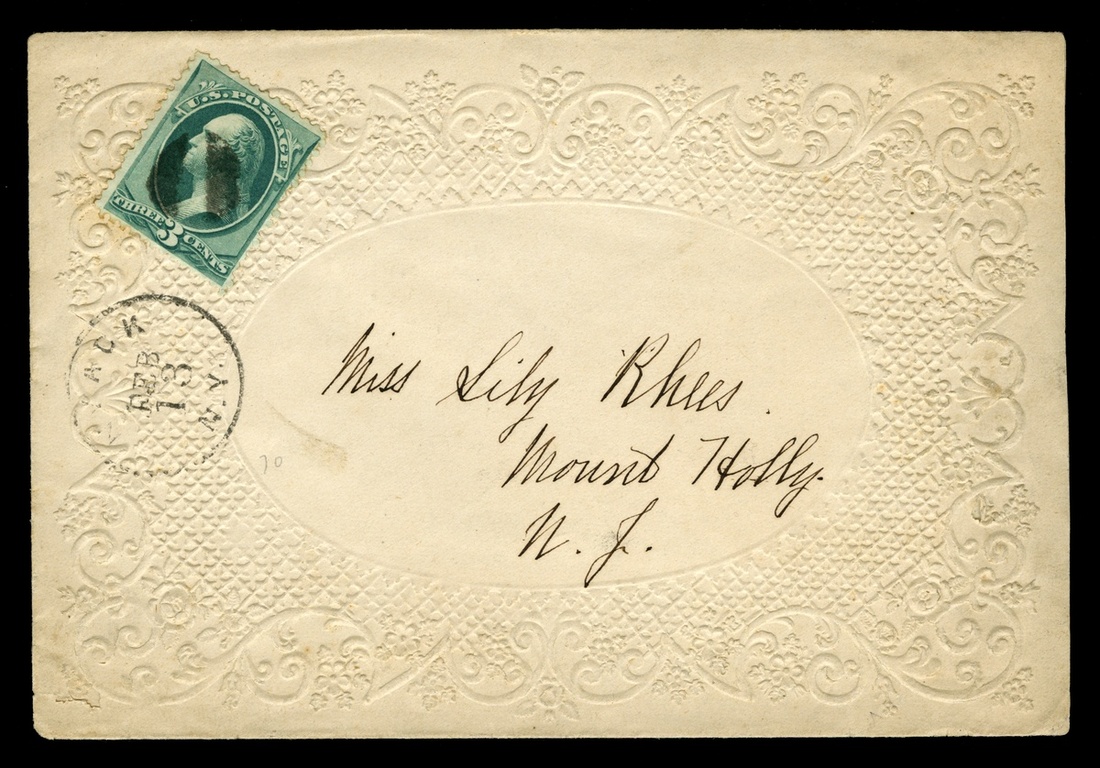 U.S. POSTAGE
THREE 3 CENTS
ACK
N.Y.
FEB
13
Miss Lily Rhees.
Mount Holly.
N. J.
70